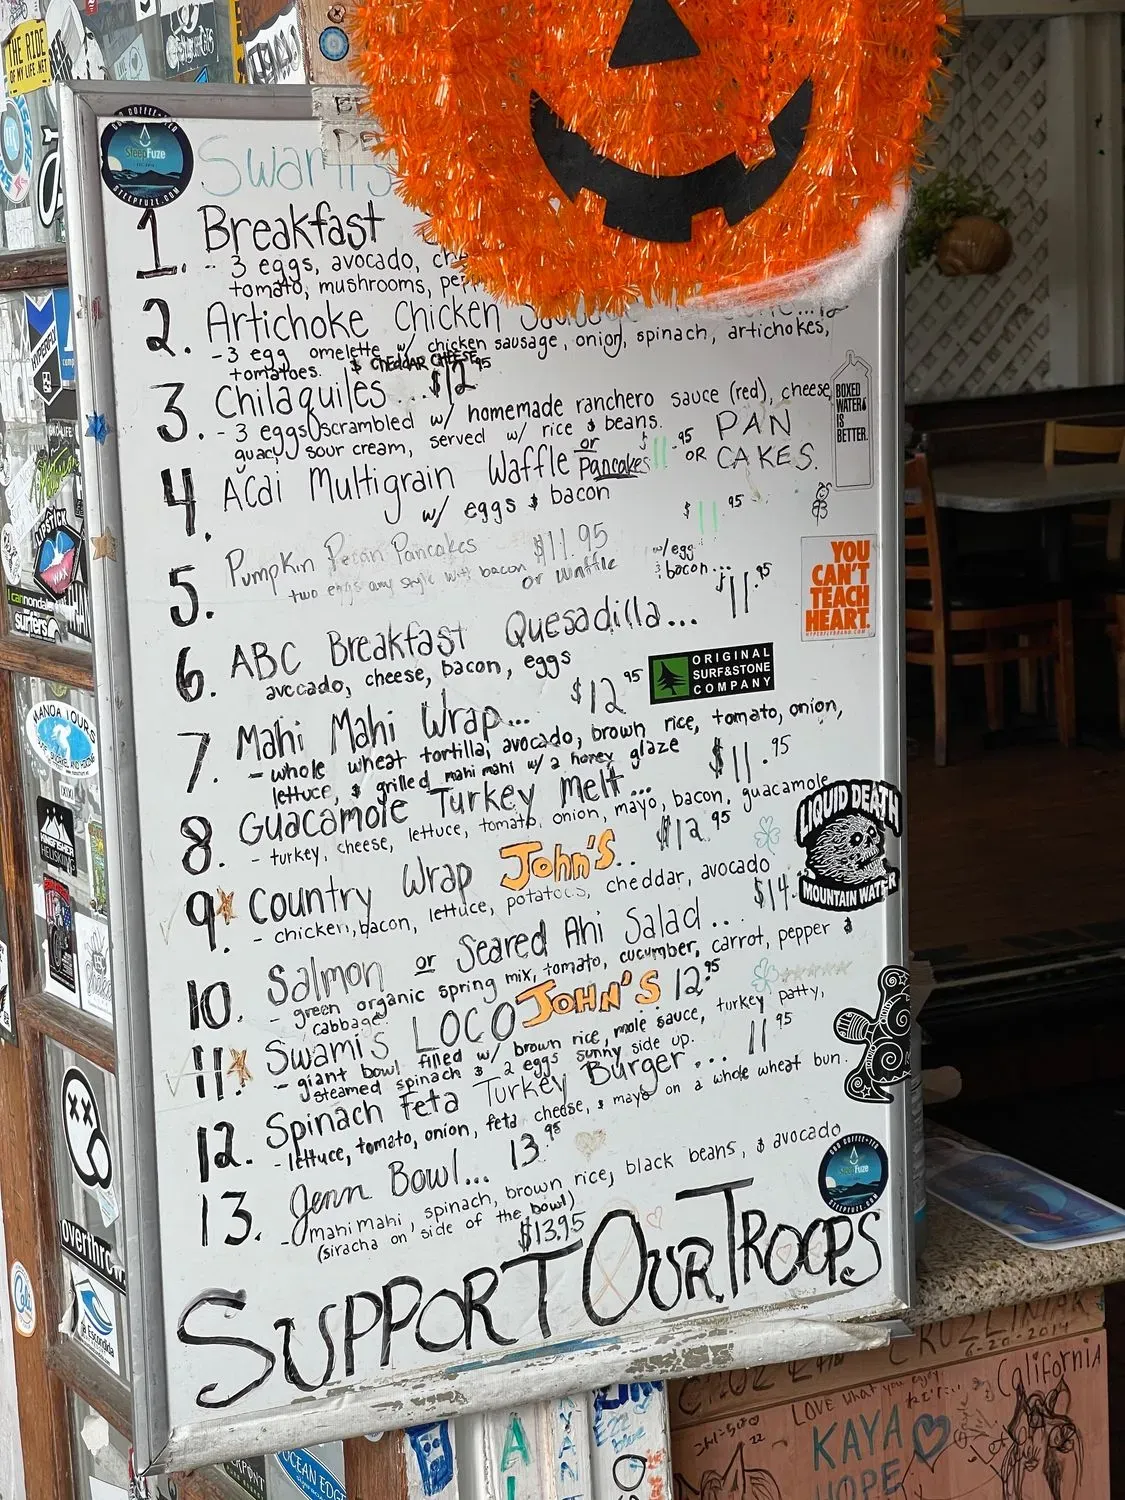 THE RIDE
OF MY LIFE.NET
GOD COFFEE-TEA
SleepFuze
SLEEPFUZE.COM
Swami's
1. Breakfast
- 3 eggs, avocado,
tomato, mushrooms,
2. Artichoke Chicken
- 3 egg omelette w/ chicken sausage, onion, spinach, artichokes,
tomatoes. $ CHEDDAR CHEESE
3. Chilaquiles ... $12.95
- 3 eggs scrambled w/ homemade ranchero sauce (red), cheese,
guac, sour cream, served w/ rice & beans.
4. Acai Multigrain Waffle or Pancakes $11.95 OR PAN CAKES.
w/ eggs & bacon
$11.95
5. Pumpkin Pecan Pancakes $11.95
two eggs any style with bacon or waffle
w/ egg & bacon... $11.95
6. ABC Breakfast Quesadilla...
avocado, cheese, bacon, eggs
7. Mahi Mahi Wrap... $12.95
- whole wheat tortilla, avocado, brown rice, tomato, onion,
lettuce, & grilled mahi mahi w/ a honey glaze
8. Guacamole Turkey Melt... $11.95
- turkey, cheese, lettuce, tomato, onion, mayo, bacon, guacamole
9. Country Wrap John'S.. $12.95
- chicken, bacon, lettuce, potatoes, cheddar, avocado
10. Salmon or Seared Ahi Salad... $14.
- green organic spring mix, tomato, cucumber, carrot, pepper &
cabbage
11. Swami's LOCO JOHN'S 12.95
- giant bowl filled w/ brown rice, mole sauce, turkey patty,
steamed spinach & 2 eggs sunny side up.
12. Spinach Feta Turkey Burger... 11.95
- lettuce, tomato, onion, feta cheese, & mayo on a whole wheat bun.
13. Jenn Bowl... 13.95
- mahi mahi, spinach, brown rice, black beans, & avocado
(siracha on side of the bowl)
$13.95
SUPPORT OUR TROOPS
BOXED
WATER
IS
BETTER.
YOU
CAN'T
TEACH
HEART.
ORIGINAL
SURF&STONE
COMPANY
LIQUID DEATH
MOUNTAIN WATER
GOD COFFEE-TEA
SleepFuze
SLEEPFUZE.COM
LIPSTICK
WAX
cannondale
surfers
MANOA TOURS
overthrow
la Escondida
OCEAN EDGE
6-20-2014
California
LOVE what you enjoy
KAYA
HOPE